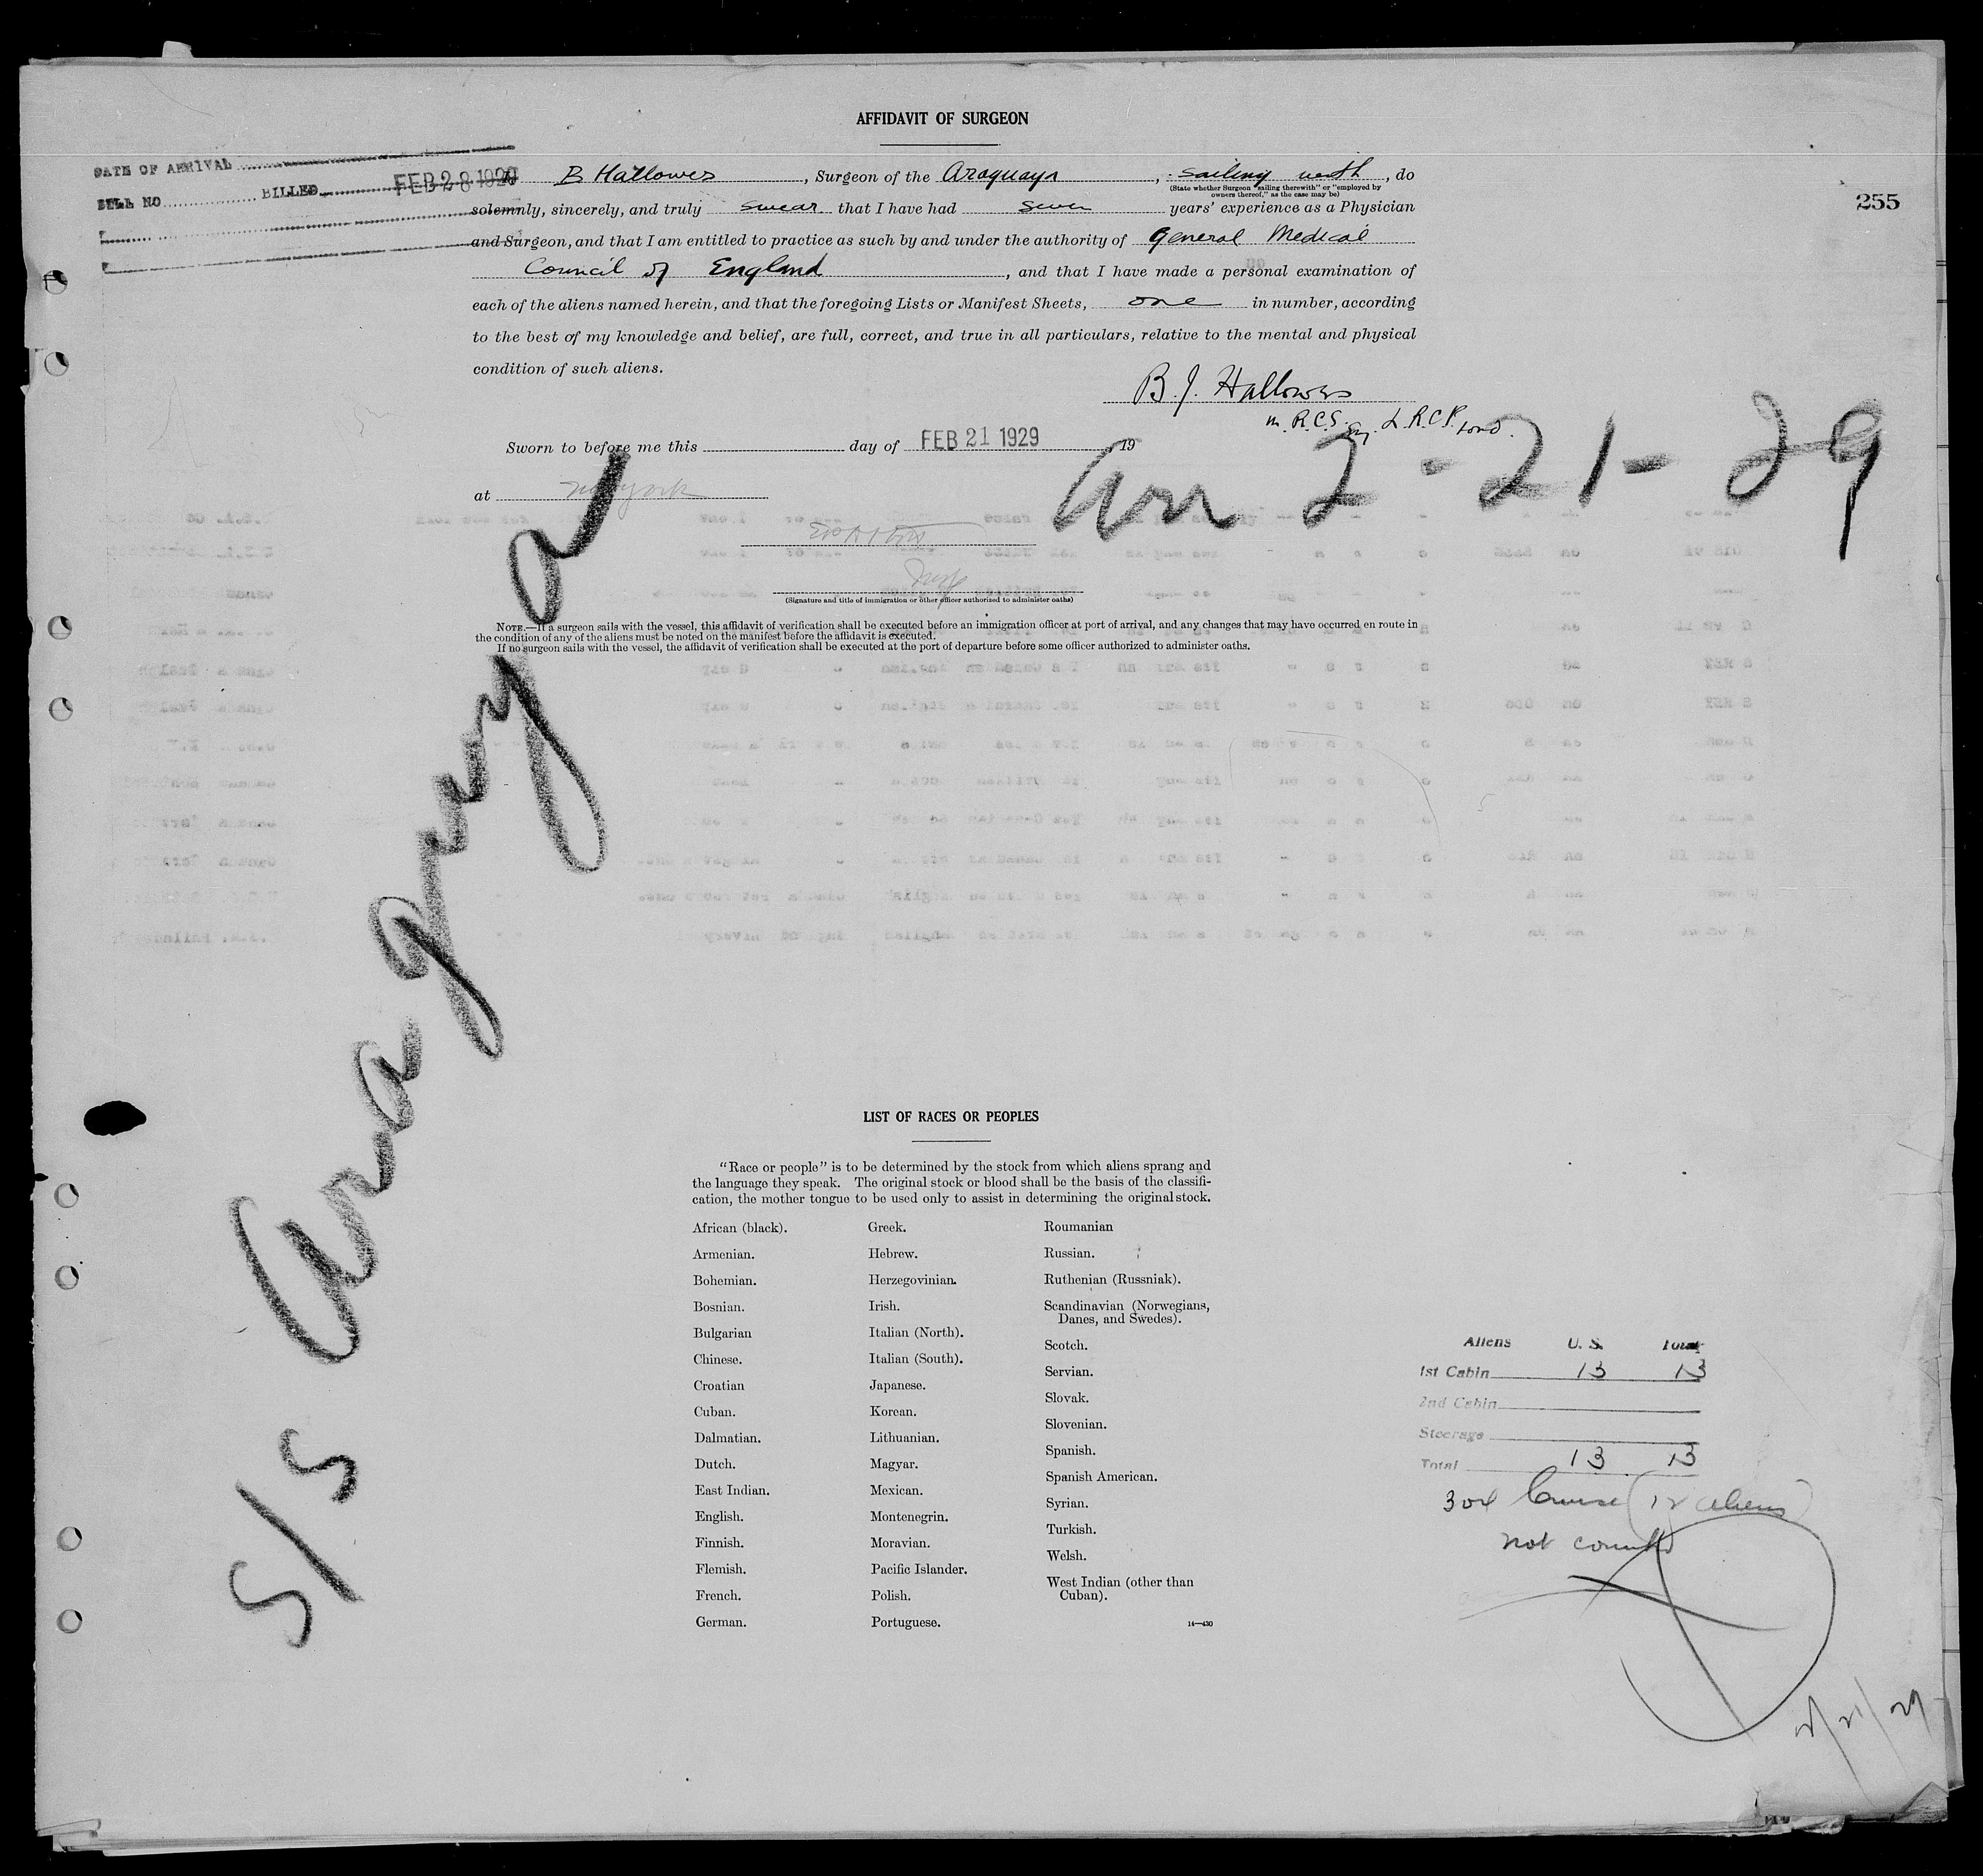 AFFIDAVIT OF SURGEON
DATE OF ARRIVAL
BILL NO. BILLED FEB 28 1929
255
I, B Hallowes, Surgeon of the Araguaya, sailing with, do
(State whether Surgeon "sailing therewith" or "employed by
owners thereof," as the case may be)
solemnly, sincerely, and truly swear that I have had seven years' experience as a Physician
and Surgeon, and that I am entitled to practice as such by and under the authority of General Medical
Council of England, and that I have made a personal examination of
each of the aliens named herein, and that the foregoing Lists or Manifest Sheets, one in number, according
to the best of my knowledge and belief, are full, correct, and true in all particulars, relative to the mental and physical
condition of such aliens.
B. J. Hallowes
M.R.C.S. Eng. L.R.C.P. Lond.
Sworn to before me this day of FEB 21 1929 19
at New York
Arr 2-21-29
(Signature and title of immigration or other officer authorized to administer oaths)
NOTE.—If a surgeon sails with the vessel, this affidavit of verification shall be executed before an immigration officer at port of arrival, and any changes that may have occurred en route in
the condition of any of the aliens must be noted on the manifest before the affidavit is executed.
If no surgeon sails with the vessel, the affidavit of verification shall be executed at the port of departure before some officer authorized to administer oaths.
S/S Araguaya
LIST OF RACES OR PEOPLES
"Race or people" is to be determined by the stock from which aliens sprang and
the language they speak. The original stock or blood shall be the basis of the classifi-
cation, the mother tongue to be used only to assist in determining the original stock.
African (black).
Armenian.
Bohemian.
Bosnian.
Bulgarian
Chinese.
Croatian
Cuban.
Dalmatian.
Dutch.
East Indian.
English.
Finnish.
Flemish.
French.
German.
Greek.
Hebrew.
Herzegovinian.
Irish.
Italian (North).
Italian (South).
Japanese.
Korean.
Lithuanian.
Magyar.
Mexican.
Montenegrin.
Moravian.
Pacific Islander.
Polish.
Portuguese.
Roumanian
Russian.
Ruthenian (Russniak).
Scandinavian (Norwegians,
Danes, and Swedes).
Scotch.
Servian.
Slovak.
Slovenian.
Spanish.
Spanish American.
Syrian.
Turkish.
Welsh.
West Indian (other than
Cuban).
14—430
Aliens U. S. Total
1st Cabin 13 13
2nd Cabin
Steerage
Total 13 13
304 Cruise (12 aliens)
not counted
2/21/29